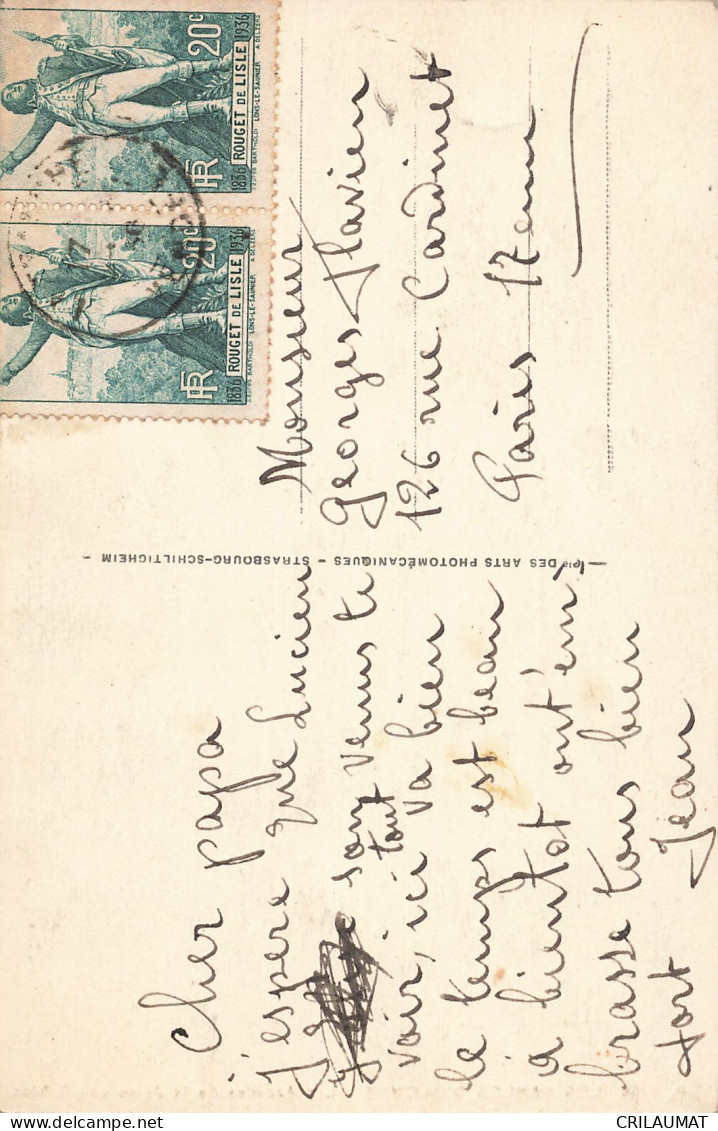 Cher papa
j'espere que Lucien
son venus te
voir, ici tout va bien
le temps est beau
a bientot ont t'em
brasse tous bien
fort Jean
Cie DES ARTS PHOTOMÉCANIQUES - STRASBOURG-SCHILTIGHEIM -
Monsieur
Georges Flavien
126 rue Cardinet
Paris 17eme
20c
RF
1836 ROUGET DE LISLE 1936
LONS-LE-SAUNIER A. DELZERS
20c
RF
1836 ROUGET DE LISLE 1936
LONS-LE-SAUNIER A. DELZERS
CRILAUMAT